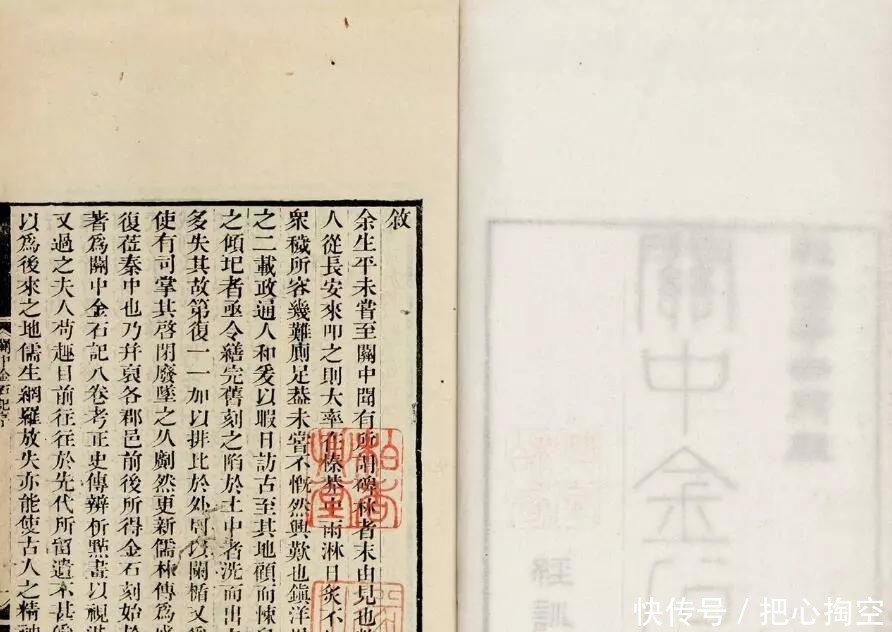 關中金石
經訓
敘
余生平未嘗至關中聞有所謂碑林者末由見也
人從長安來叩之則大率在榛莽中雨淋日炙不
衆穢所容幾難廁足葢未嘗不慨然興歎也鎮洋
之二載政通人和爰以暇日訪古至其地顧而悚
之傾圮者亟令繕完舊刻之陷於土中者洗而出
多失其故第復一一加以排比於外周以闌楯又
使有司掌其啓閉廢墜之久劃然更新儒林傳爲盛
復莅秦中也乃幷裒各郡邑前後所得金石刻始於
著爲關中金石記八卷考正史傳辨析點畫以視洪
又過之夫人苟趣目前往往於先代所留遺不甚
以爲後來之地儒生網羅放失亦能使古人之精神
關中金石記
快传号 / 把心掏空